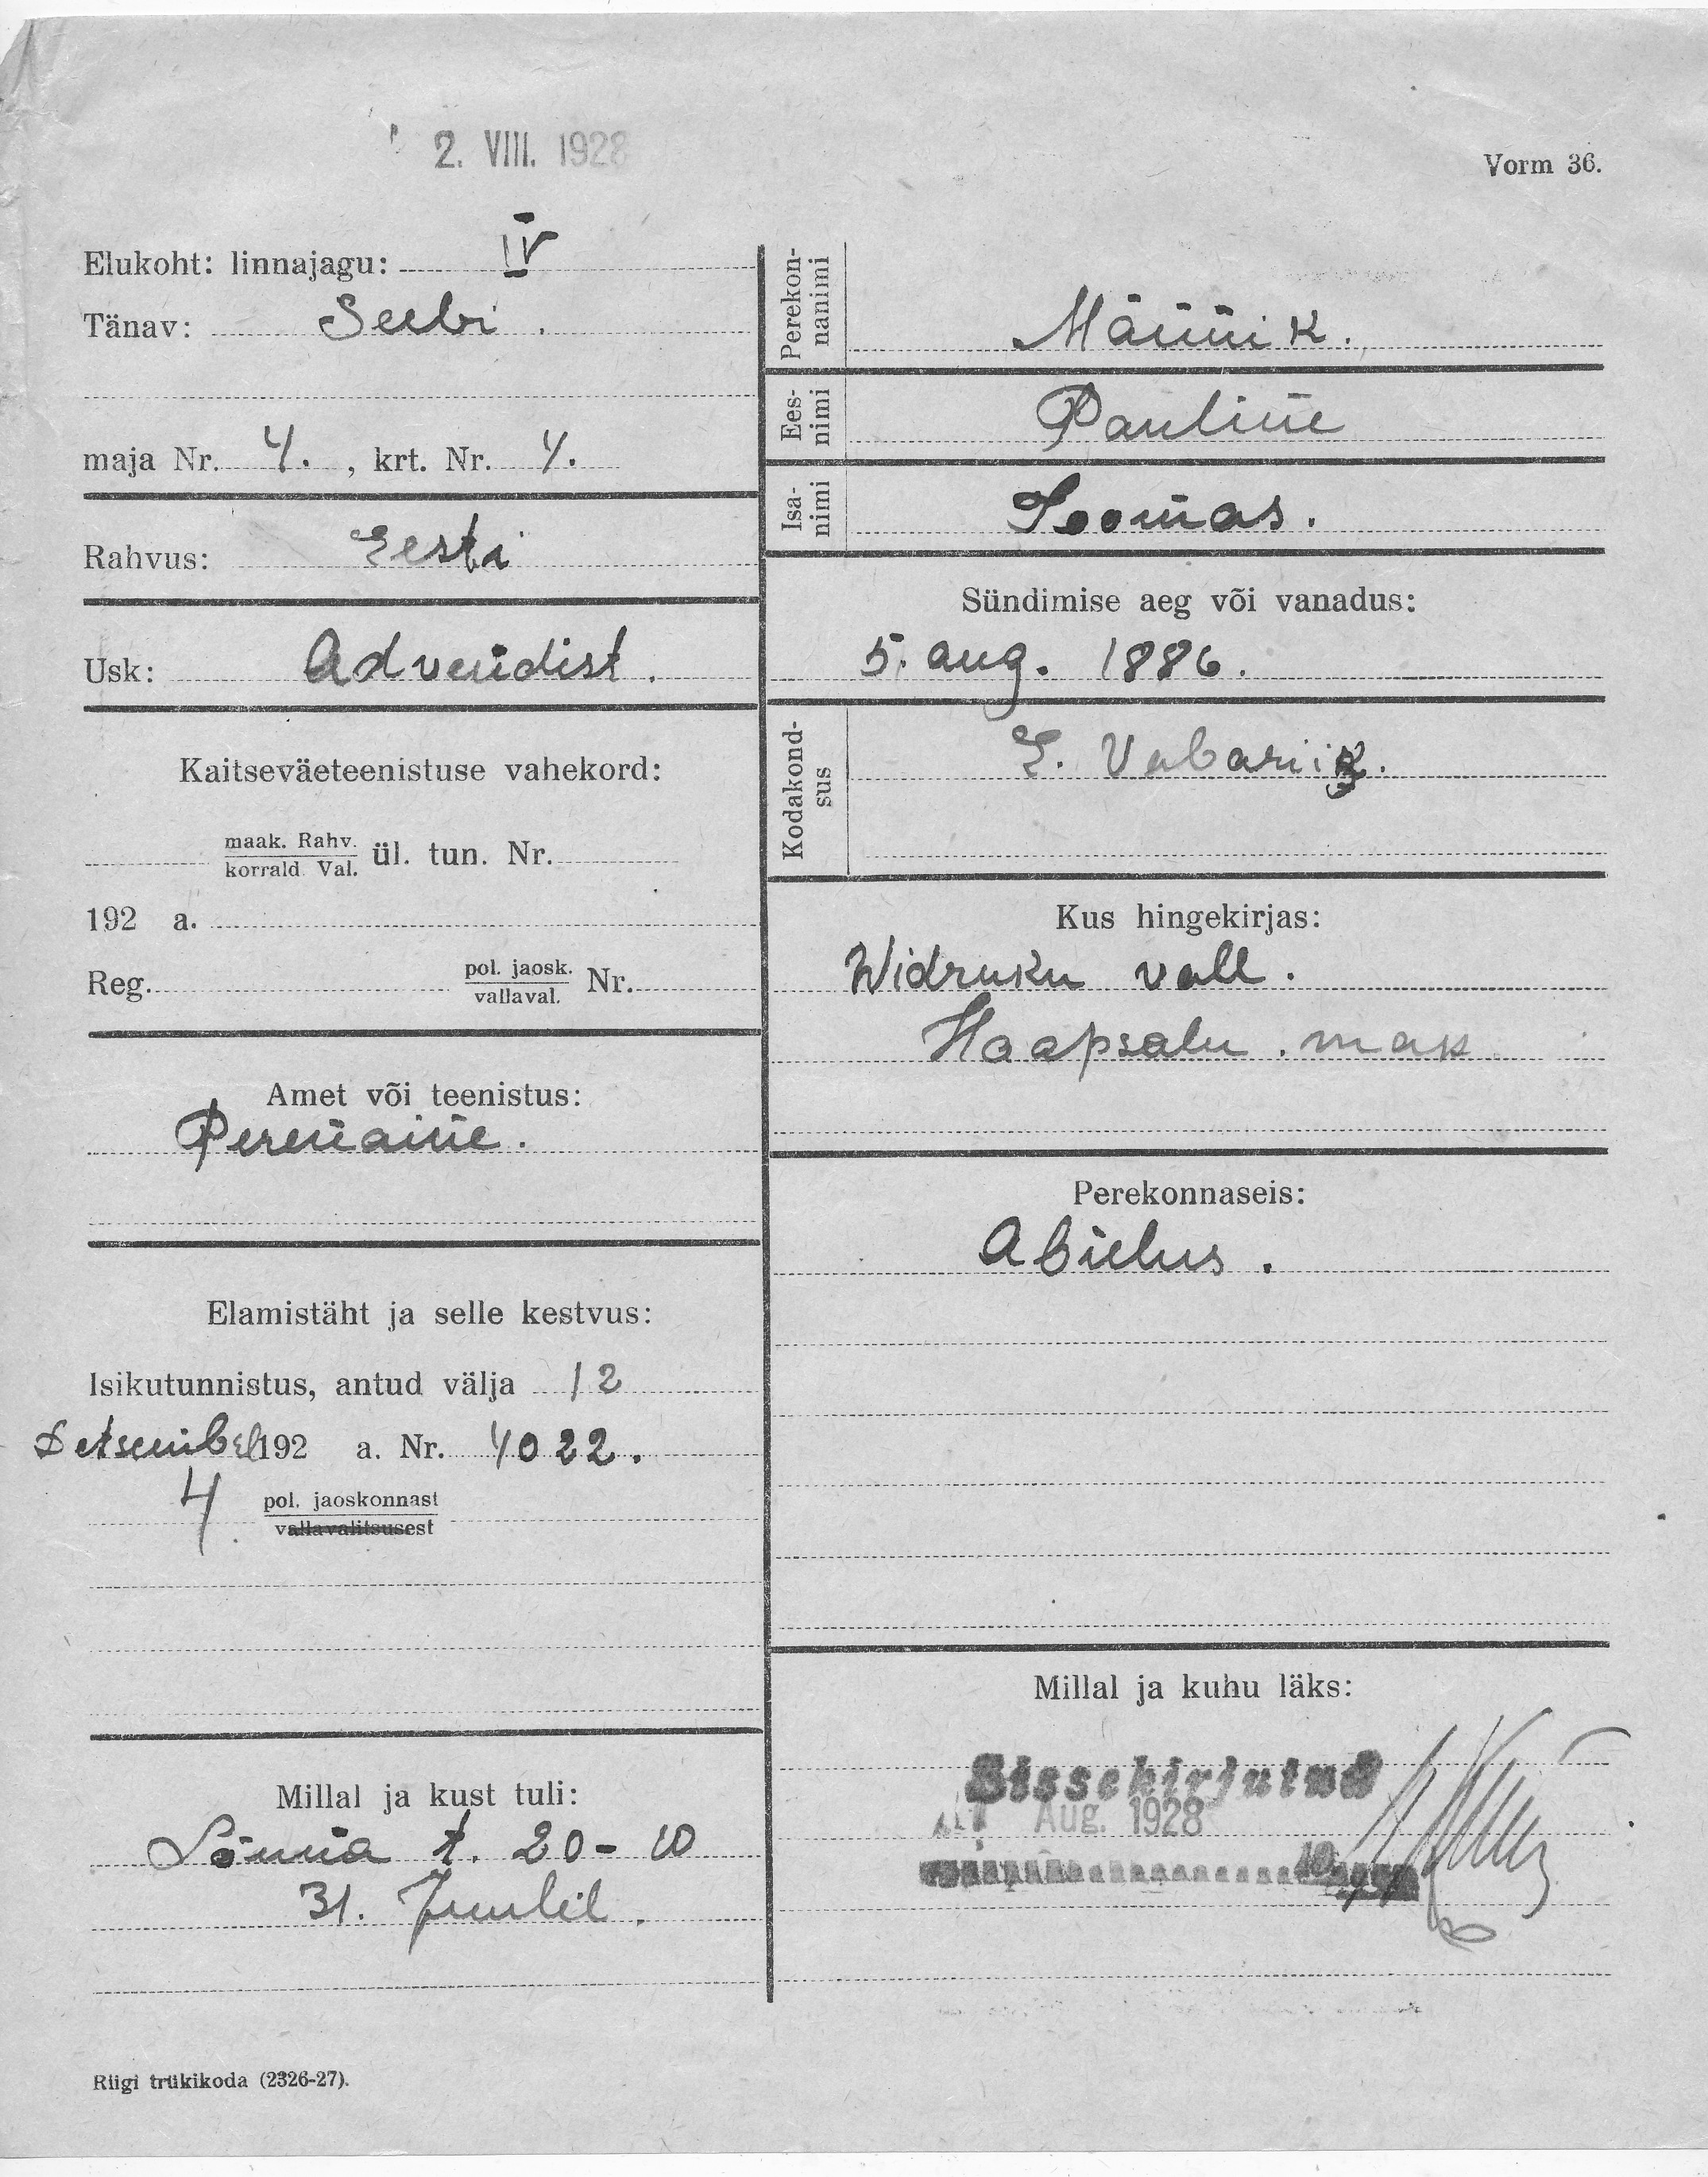 2. VIII. 1928
Vorm 36.
Elukoht: linnajagu: IV
Tänav: Seebi.
maja Nr. 4., krt. Nr. 4.
Rahvus: Eesti
Usk: Advendist.
Kaitseväeteenistuse vahekord:
maak. Rahv.
korrald. Val. ül. tun. Nr.
192 a.
Reg. pol. jaosk.
vallaval. Nr.
Amet või teenistus:
Perenaine.
Elamistäht ja selle kestvus:
Isikutunnistus, antud välja 12
Detsembel 192 a. Nr. 4022.
4 pol. jaoskonnast
vallavalitsusest
Millal ja kust tuli:
Sõnna t. 20-10
31. Juulil.
Riigi trükikoda (2326-27).
Perekon-
nanimi
Männik.
Ees-
nimi
Pauline
Isa-
nimi
Toomas.
Sündimise aeg või vanadus:
5. aug. 1886.
Kodakond-
sus
E. Vabariik.
Kus hingekirjas:
Widruku vall.
Haapsalu. mak
Perekonnaseis:
Abielus.
Millal ja kuhu läks:
Sissekirjutud
Aug. 1928